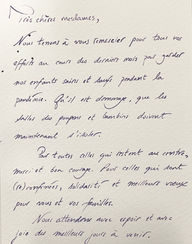 Très chères mesdames,
Nous tenons à vous remercier pour tous vos
efforts au cours des derniers mois pour garder
nos enfants sains et saufs pendant la
pandémie. Qu'il est dommage, que les
salles des poupons et bambins doivent
maintenant s'isoler.
Pour toutes celles qui restent au centre,
merci et bon courage. Pour celles qui sont
(re)confinées, solidarité et meilleurs vœux
pour vous et vos familles.
Nous attendons avec espoir et avec
joie des meilleurs jours à venir.